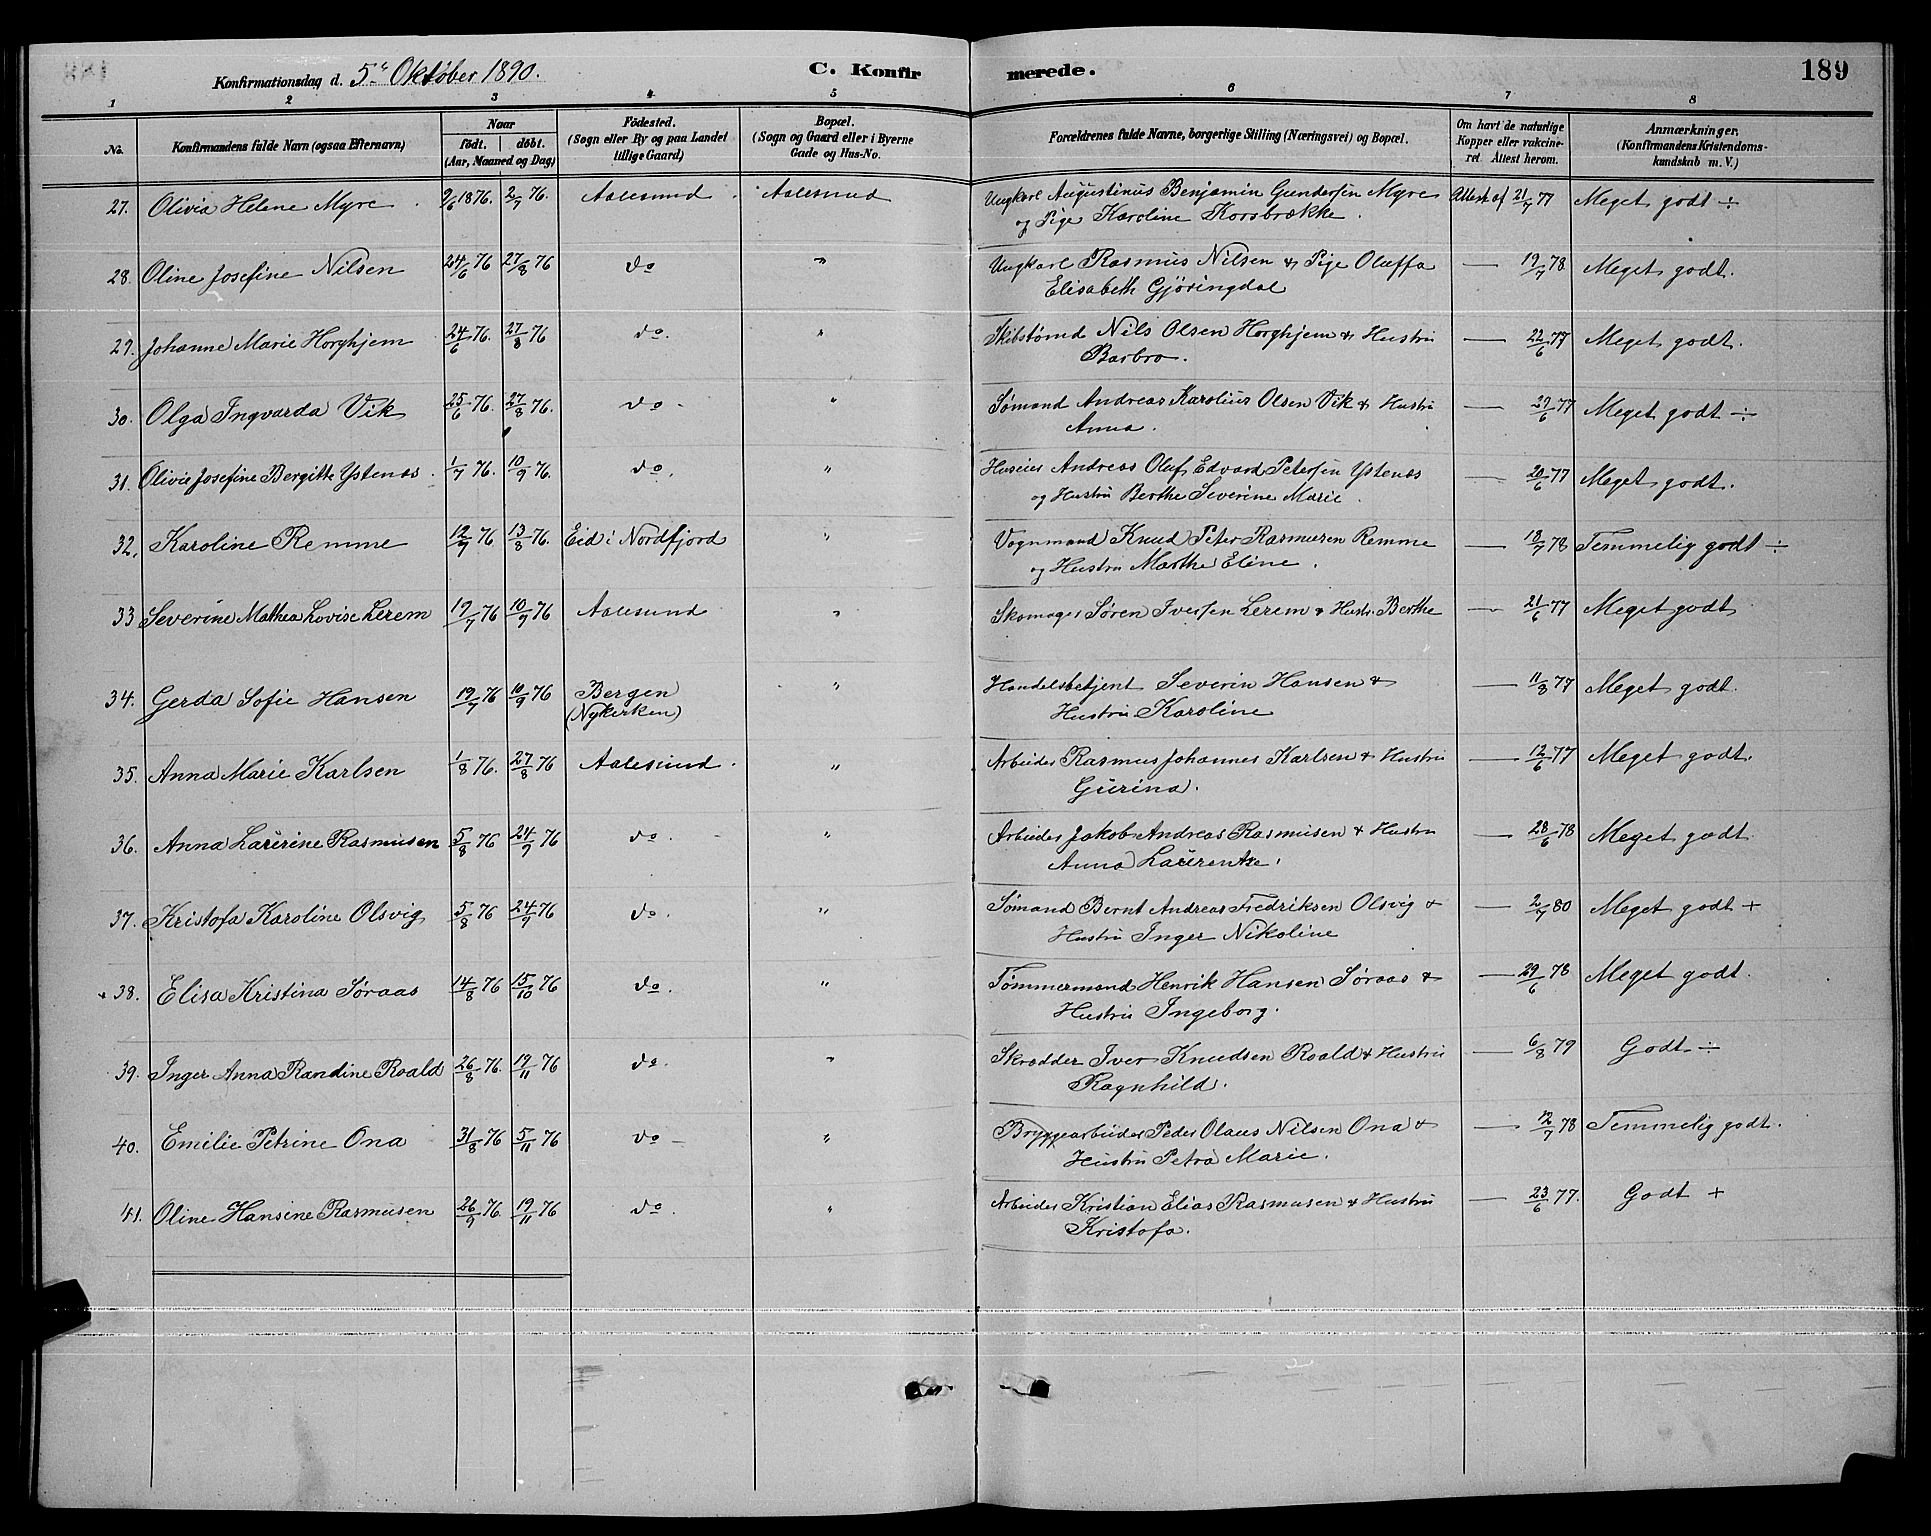 Konfirmationsdag d. 5te Oktober 1890.
C. Konfirmerede.
189
1 2 3 4 5 6 7 8
No.
Konfirmandens fulde Navn (ogsaa Efternavn)
Naar
födt. döbt.
(Aar, Maaned og Dag)
Födested.
(Sogn eller By og paa Landet
tillige Gaard)
Bopæl.
(Sogn og Gaard eller i Byerne
Gade og Hus-No.
Forældrenes fulde Navne, borgerlige Stilling (Næringsvei) og Bopæl.
Om havt de naturlige
Kopper eller vakcine-
ret. Attest herom.
Anmærkninger.
(Konfirmandens Kristendoms-
kundskab m. V.)
27. Olivia Helene Myre 9/6 1876. 2/7 76. Aalesund Aalesund Ungkarl Augustinus Benjamin Gundersen Myre Attest af 21/7 77 Meget godt ÷
og Pige Karoline Korsbrække.
28. Oline Josefine Nilsen 24/6 76 27/8 76 do " Ungkarl Rasmus Nilsen & Pige Oluffa — 19/7 78 Meget godt.
Elisabeth Gjöringdal
29. Johanne Marie Horghjem 24/6 76. 27/8 76 do. " Skibstømd Nils Olsen Horghjem & Hustru — 22/6 77 Meget godt.
Barbro.
30. Olga Ingvarda Vik 25/6 76. 27/8 76. do - " Sømand Andreas Karolius Olsen Vik & Hustru — 27/6 77 Meget godt ÷
Anna.
31. Olivie Josefine Bergitte Ystenæs 1/7 76. 10/9 76. do. " Huseier Andreas Oluf Edvard Petersen Ystenæs — 20/6 77 Meget godt.
og Hustru Berthe Severine Marie.
32. Karoline Remme 12/7 76 13/8 76. Eid i Nordfjord " Vognmand Knud Peter Rasmusen Remme — 18/7 78 Temmelig godt ÷
og Hustru Marthe Eline.
33 Severine Mathea Lovise Lerem 19/7 76 10/9 76 Aalesund " Skomager Søren Iversen Lerem & Hustr. Berthe — 21/6 77 Meget godt
34. Gerda Sofie Hansen 19/7 76 10/9 76 Bergen " Handelsbetjent Severin Hansen & — 11/8 77 Meget godt.
(Nykirken) Hustru Karoline
35. Anna Marie Karlsen 1/8 76. 27/8 76 Aalesund. " Arbeider Rasmus Johannes Karlsen & Hustru — 12/6 77 Meget godt.
Gurina.
36. Anna Laurine Rasmusen 5/8 76 24/9 76 do. " Arbeider Jakob Andreas Rasmusen & Hustru — 28/6 78 Meget godt
Anna Laurentse.
37. Kristofa Karoline Olsvig 5/8 76 24/9 76 do. " Sømand Bernt Andreas Fredriksen Olsvig & — 2/7 80 Meget godt +
Hustru Inger Nikoline
38. Elisa Kristina Søraas 14/8 76 15/10 76 do. " Tømmermand Henrik Hansen Søraas & — 29/6 78 Meget godt.
Hustru Ingeborg.
39. Inger Anna Randine Roald 26/8 76. 19/11 76 do. " Skrædder Iver Knudsen Roald & Hustru — 6/8 79 Godt ÷
Ragnhild.
40. Emilie Petrine Ona 31/8 76 5/11 76 do - " Bryggearbeider Peder Olaus Nilsen Ona & — 12/7 78 Temmelig godt.
Hustru Petra Marie.
41. Oline Hansine Rasmusen 26/9 76. 19/11 76 do. " Arbeider Kristian Elias Rasmusen & Hustru — 23/6 77. Godt +
Kristofa.